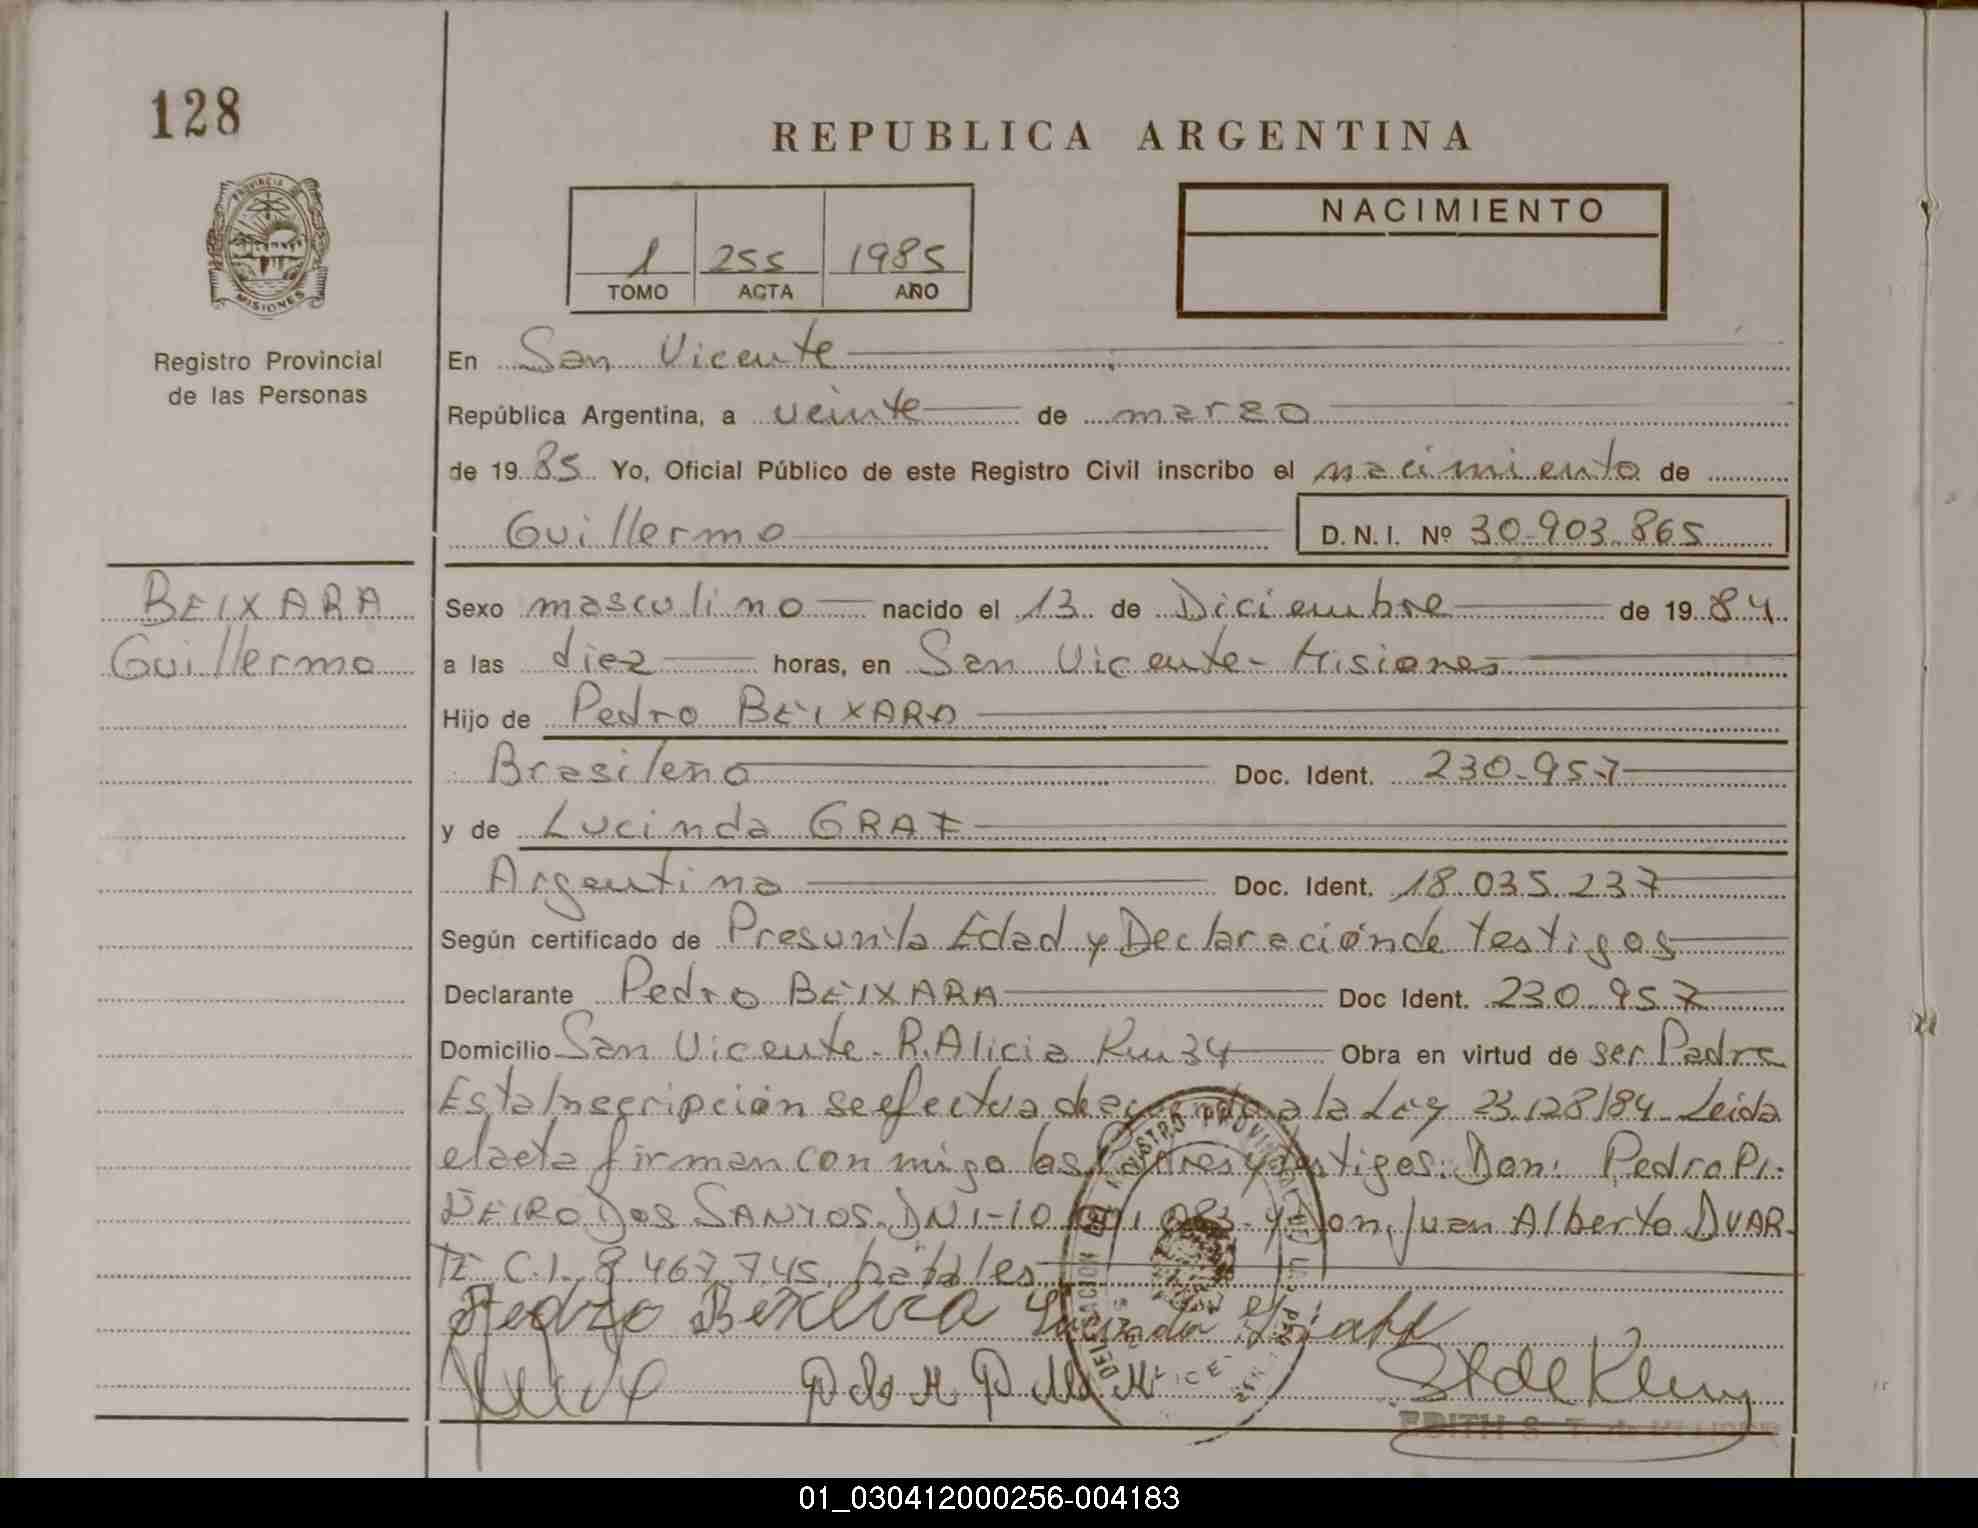 128
REPUBLICA ARGENTINA
PROVINCIA DE
MISIONES
1 255 1985
TOMO ACTA AÑO
NACIMIENTO
Registro Provincial
de las Personas
En San Vicente
República Argentina, a veinte de marzo
de 1985 Yo, Oficial Público de este Registro Civil inscribo el nacimiento de
Guillermo D.N.I. Nº 30.903.865
BEIXARA
Guillermo
Sexo masculino nacido el 13 de Diciembre de 1984
a las diez horas, en San Vicente - Misiones
Hijo de Pedro BEIXARA
Brasileño Doc. Ident. 230.957
y de Lucinda GRAF
Argentina Doc. Ident. 18.035.237
Según certificado de Presunta Edad y Declaración de testigos
Declarante Pedro BEIXARA Doc Ident. 230.957
Domicilio San Vicente - R. Alicia Km 34 Obra en virtud de ser Padre
Esta Inscripción se efectua de acuerdo a la Ley 23.128/84 - Leida
el acta firman con migo los Padres y testigos: Don: Pedro PI-
ÑEIRO DOS SANTOS. DNI-10 083 - y Don, Juan Alberto DUAR-
TE C.I. 8.467.745, hábiles
Pedro Beixara Lucinda
EDITH S. T. de
01_030412000256-004183